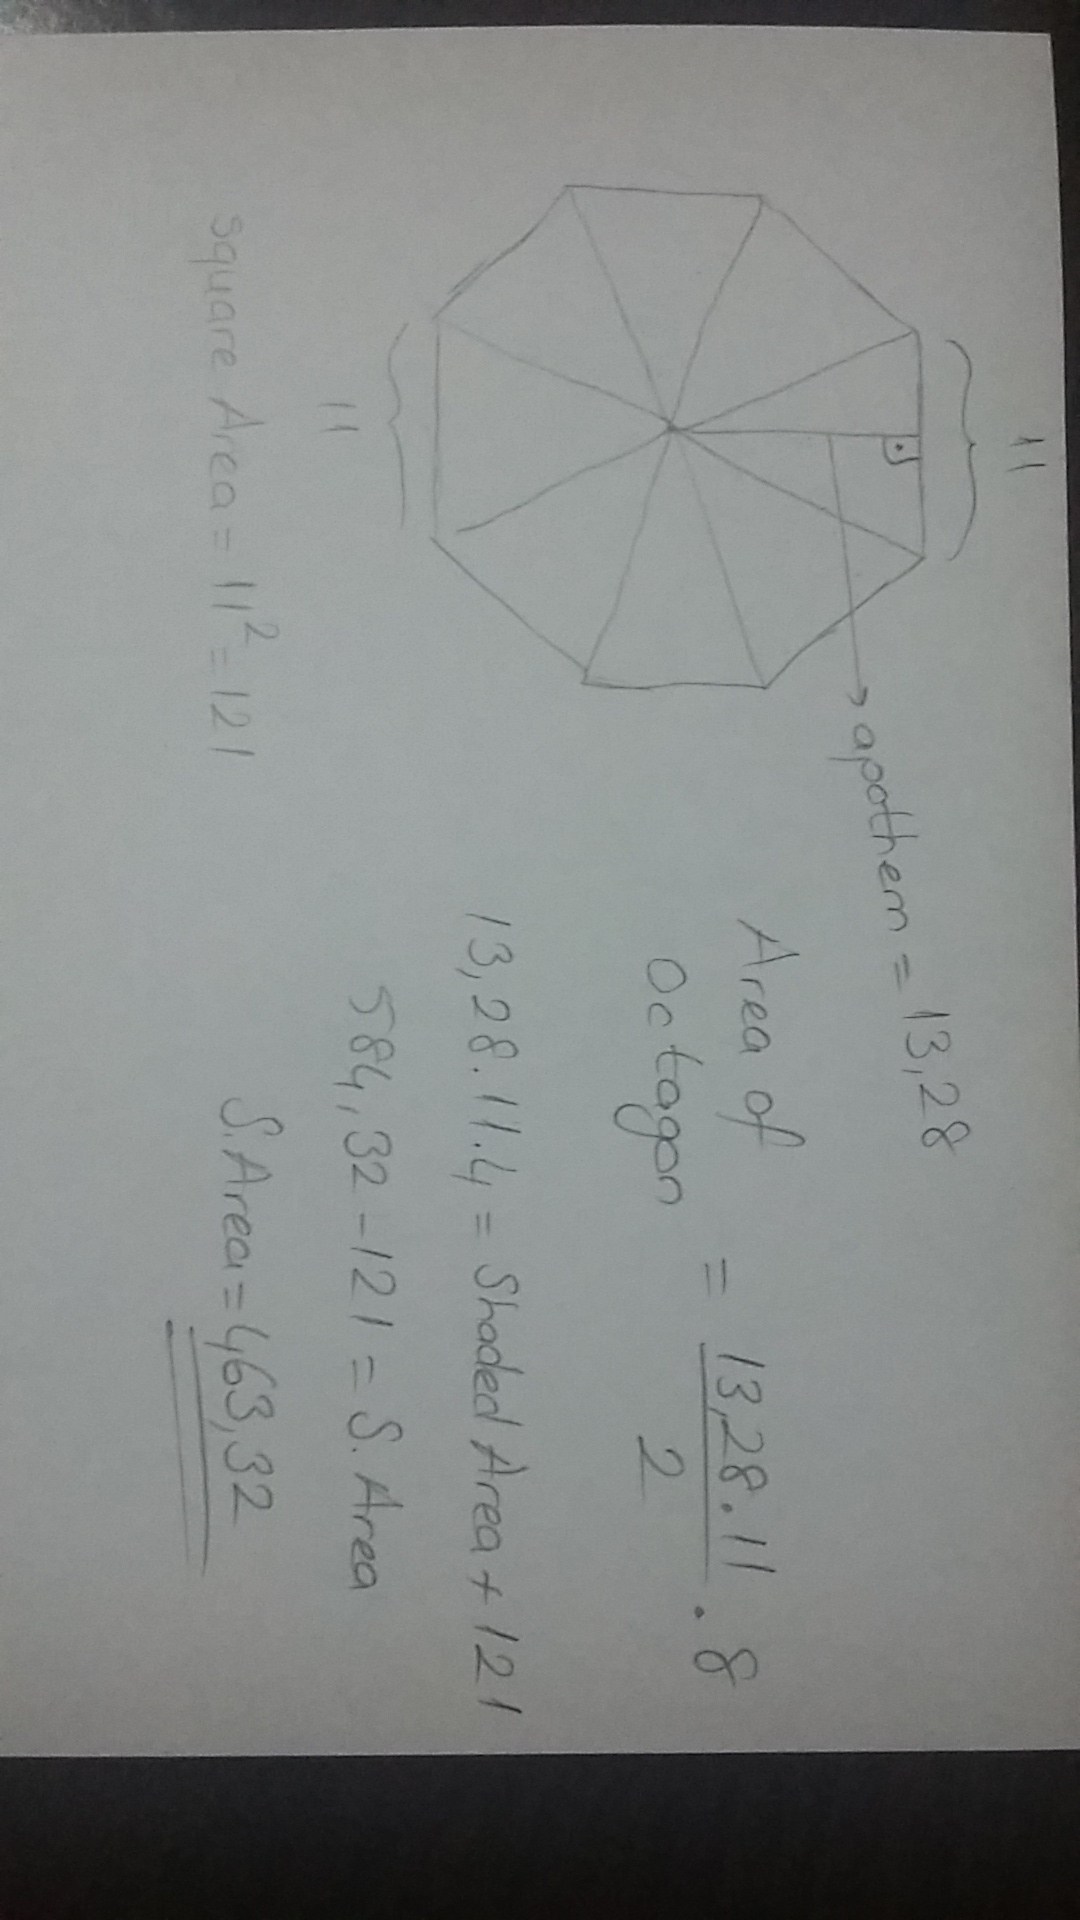 11
apothem = 13,28
11
square Area = 11² = 121
Area of
Octagon
= 13,28 . 11 . 8
2
13,28 . 11 . 4 = Shaded Area + 121
584,32 - 121 = S. Area
S. Area = 463,32